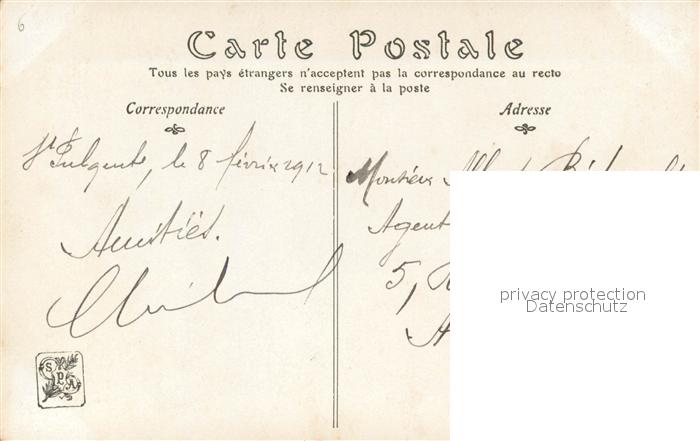 6
Carte Postale
Tous les pays étrangers n'acceptent pas la correspondance au recto
Se renseigner à la poste
Correspondance
Adresse
St Fulgent, le 8 février 1912
Monsieur Albert
Agent
Amitiés.
5,
privacy protection
Datenschutz
SPA